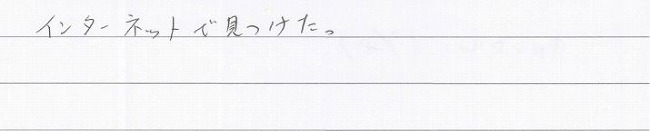 インターネットで見つけた。